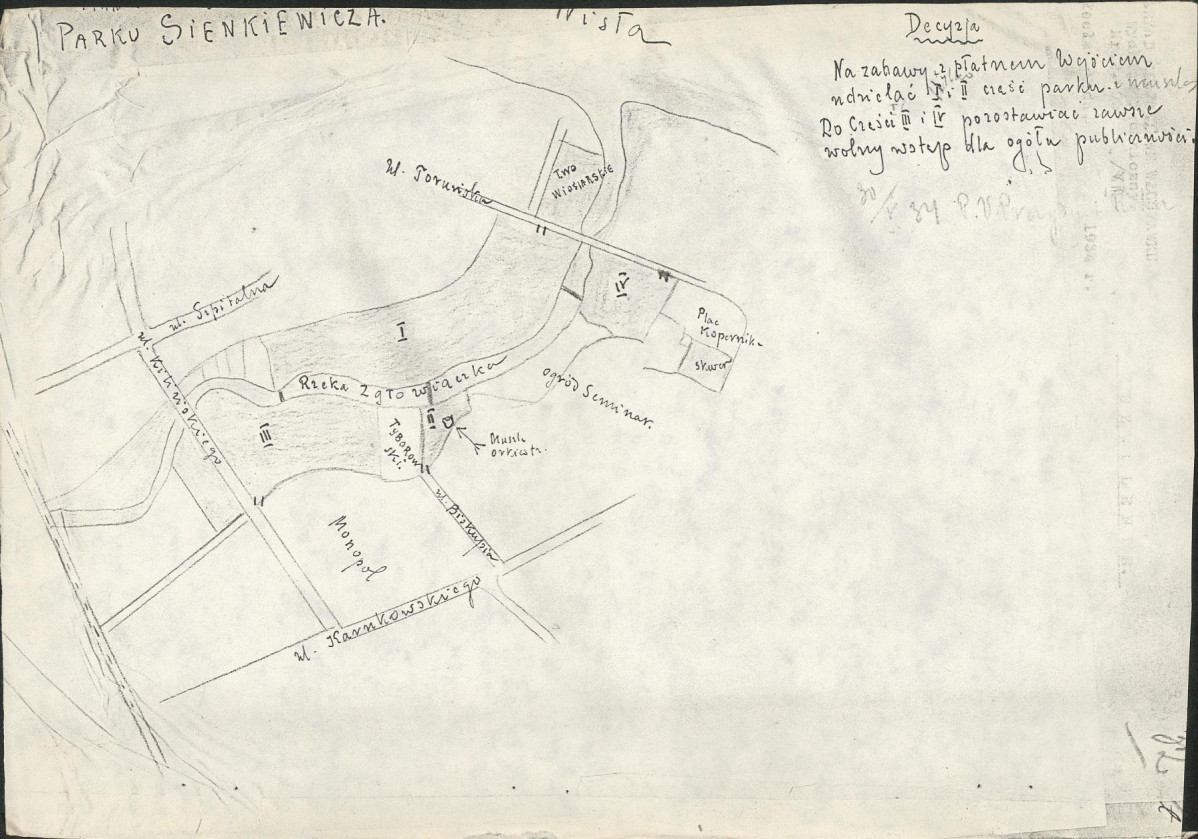 PARKU SIENKIEWICZA.
Wisła
Decyzja
Na zabawy z płatnem Wejściem
udzielać I i II część parku.
Do Części III i IV pozostawiać zawsze
wolny wstęp dla ogółu publiczności.
30/ 34
Two
WIOŚLARSKIE
ul. Toruńska
IV
Plac
Kopernik.
skwer
ul. Szpitalna
I
ul. Kilińskiego
Rzeka Zgłowiączka
ogród Seminar.
III
TYBOROW
SKI.
II
Muszla
orkiestr.
ul. Biskupia
Monopol
ul. Karnkowskiego